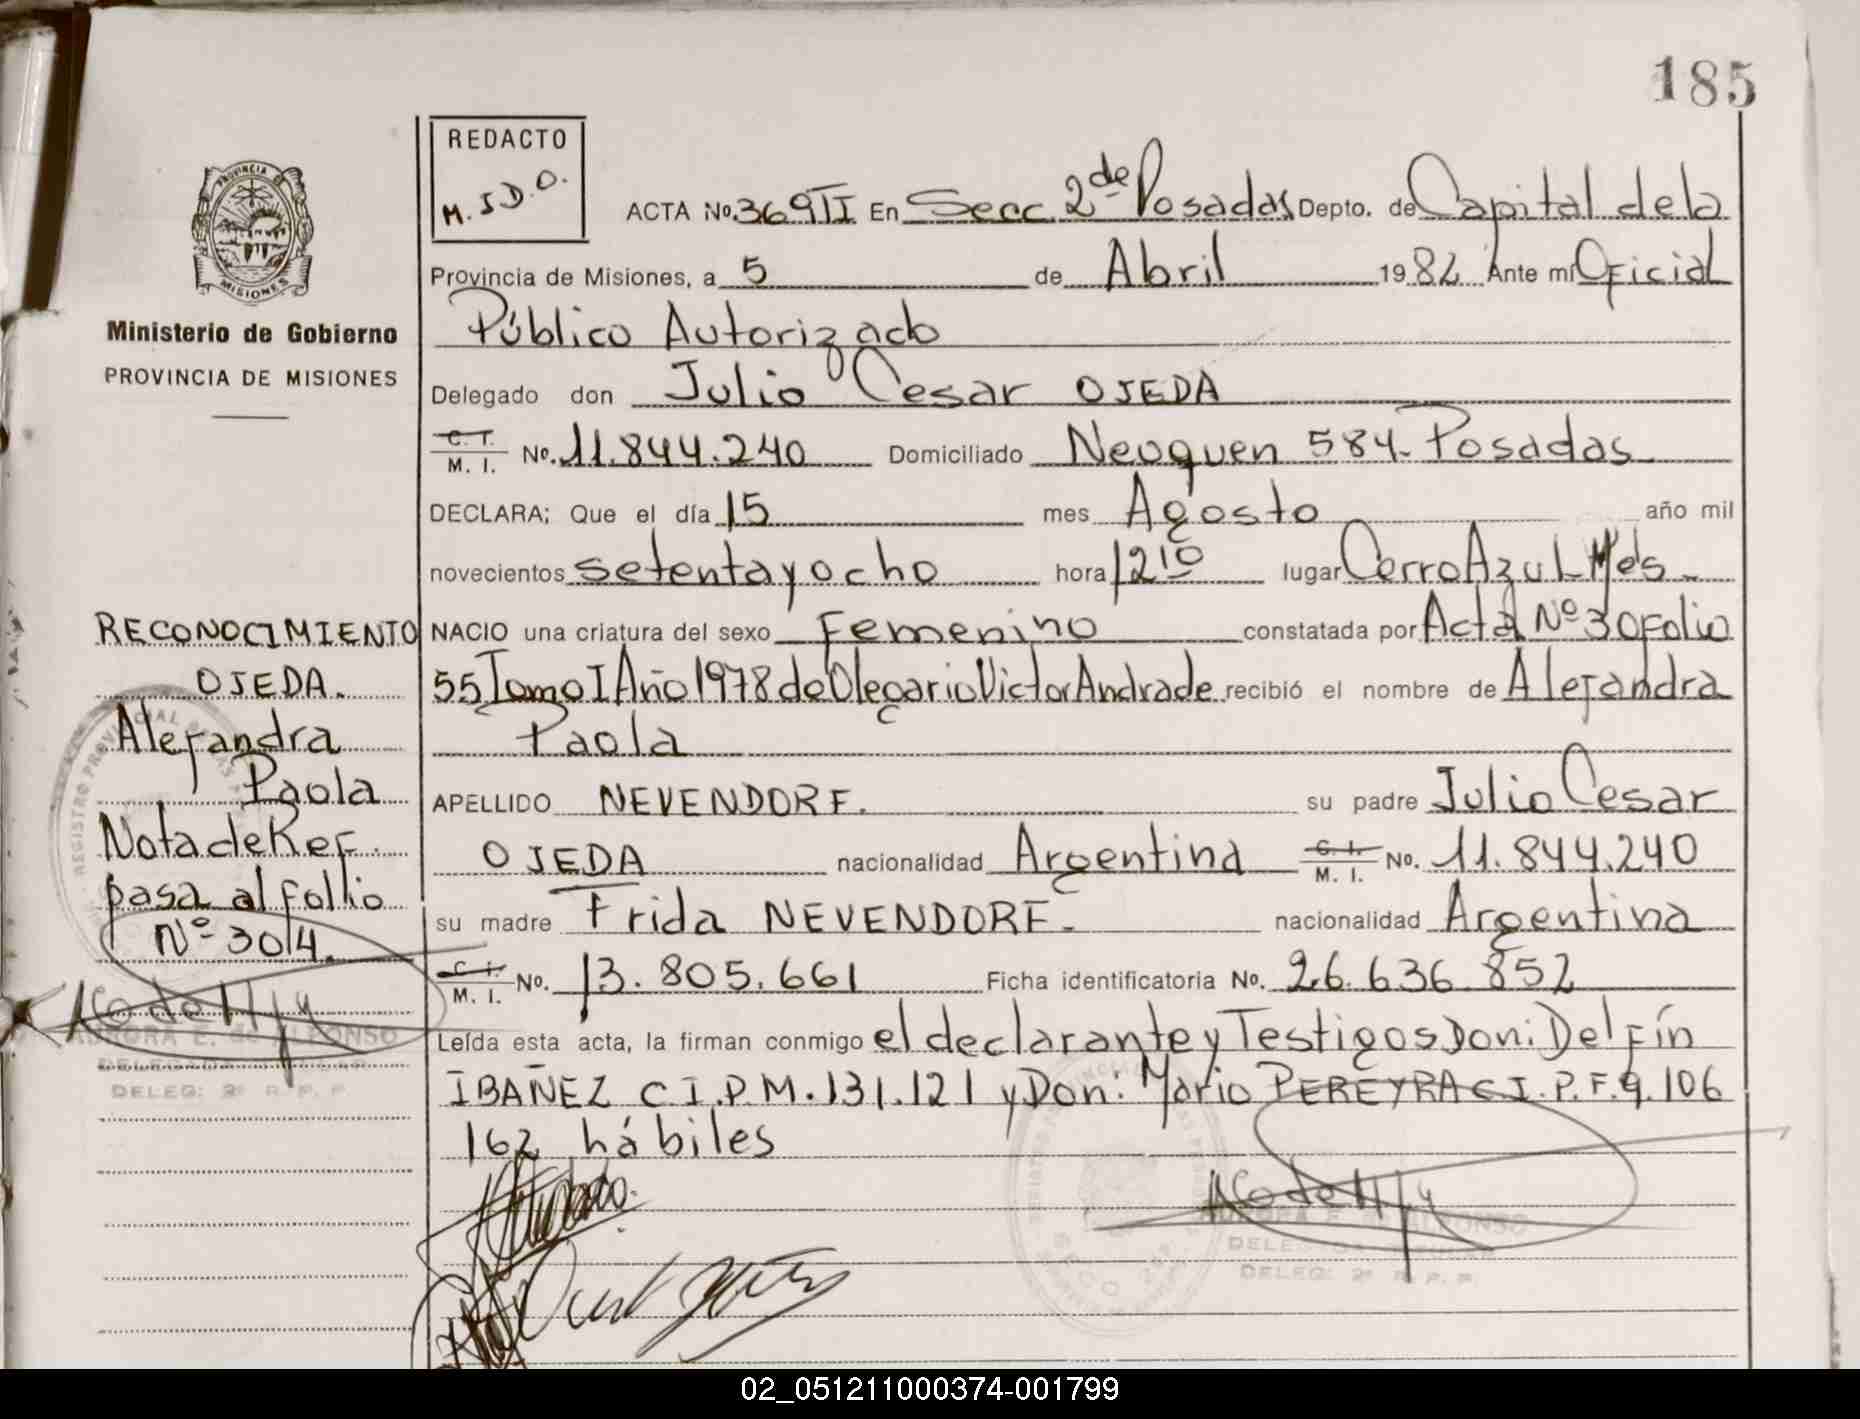 185
REDACTO
M.J.D.O.
PROVINCIA DE
MISIONES
Ministerio de Gobierno
PROVINCIA DE MISIONES
ACTA No. 369 TI En Secc. 2de Posadas Depto. de Capital de la
Provincia de Misiones, a 5 de Abril 1982 Ante mí Oficial
Público Autorizado
Delegado don Julio Cesar OJEDA
C. I. M. I. No. 11.844.240 Domiciliado Neuquen 584- Posadas
DECLARA; Que el día 15 mes Agosto año mil
novecientos setenta y ocho hora 12 10 lugar Cerro Azul Mes.
NACIO una criatura del sexo Femenino constatada por Acta Nº 30 Folio
55 Tomo I Año 1978 de Olegario Victor Andrade recibió el nombre de Alejandra
Paola
APELLIDO NEVENDORF. su padre Julio Cesar
OJEDA nacionalidad Argentina C. I. M. I. No. 11.844.240
su madre Frida NEVENDORF- nacionalidad Argentina
C. I. M. I. No. 13.805.661 Ficha identificatoria No. 26.636.852
Leída esta acta, la firman conmigo el declarante y Testigos Don: Delfín
IBAÑEZ C.I.P.M. 131.121 y Don: Mario PEREYRA C.I.P.F. 9.106
162 hábiles
RECONOCIMIENTO
OJEDA.
Alejandra
Paola
Nota de Ref.
pasa al follio
Nº 304.
AURORA E. de ALFONSO
DELEGADA TITULAR
DELEG: 2ª R. P. P.
AURORA E. de ALFONSO
DELEGADA TITULAR
DELEG: 2ª R. P. P.
02_051211000374-001799